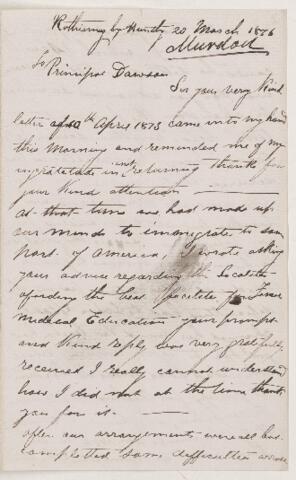 Rothiemay by Huntly 20 March 1876
Murdoch
To Principal Dawson
Sir your very kind
letter of 10th April 1873 came into my hand
this morning and reminded me of my
ingratitude in not returning thanks for
your kind attention
at that time we had made up
our minds to emigrate to some
part of America, I wrote asking
your advice regarding the Locality
affording the best facilities for
Medical Education your prompt
and kind reply was very gratefully
received I really cannot understand
how I did not at the time thank
you for it.
after our arrangements were all but
completed some difficulties arose